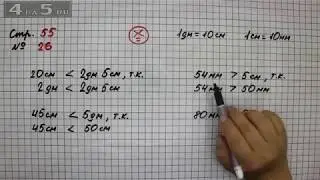 4PA5.RU
Стр. 55
№ 26
1дм = 10см
1см = 10мм
20см < 2дм 5см, т.к.
2дм < 2дм 5см
45см < 5дм, т.к.
45см < 50см
54мм > 5см, т.к.
54мм > 50мм
80мм